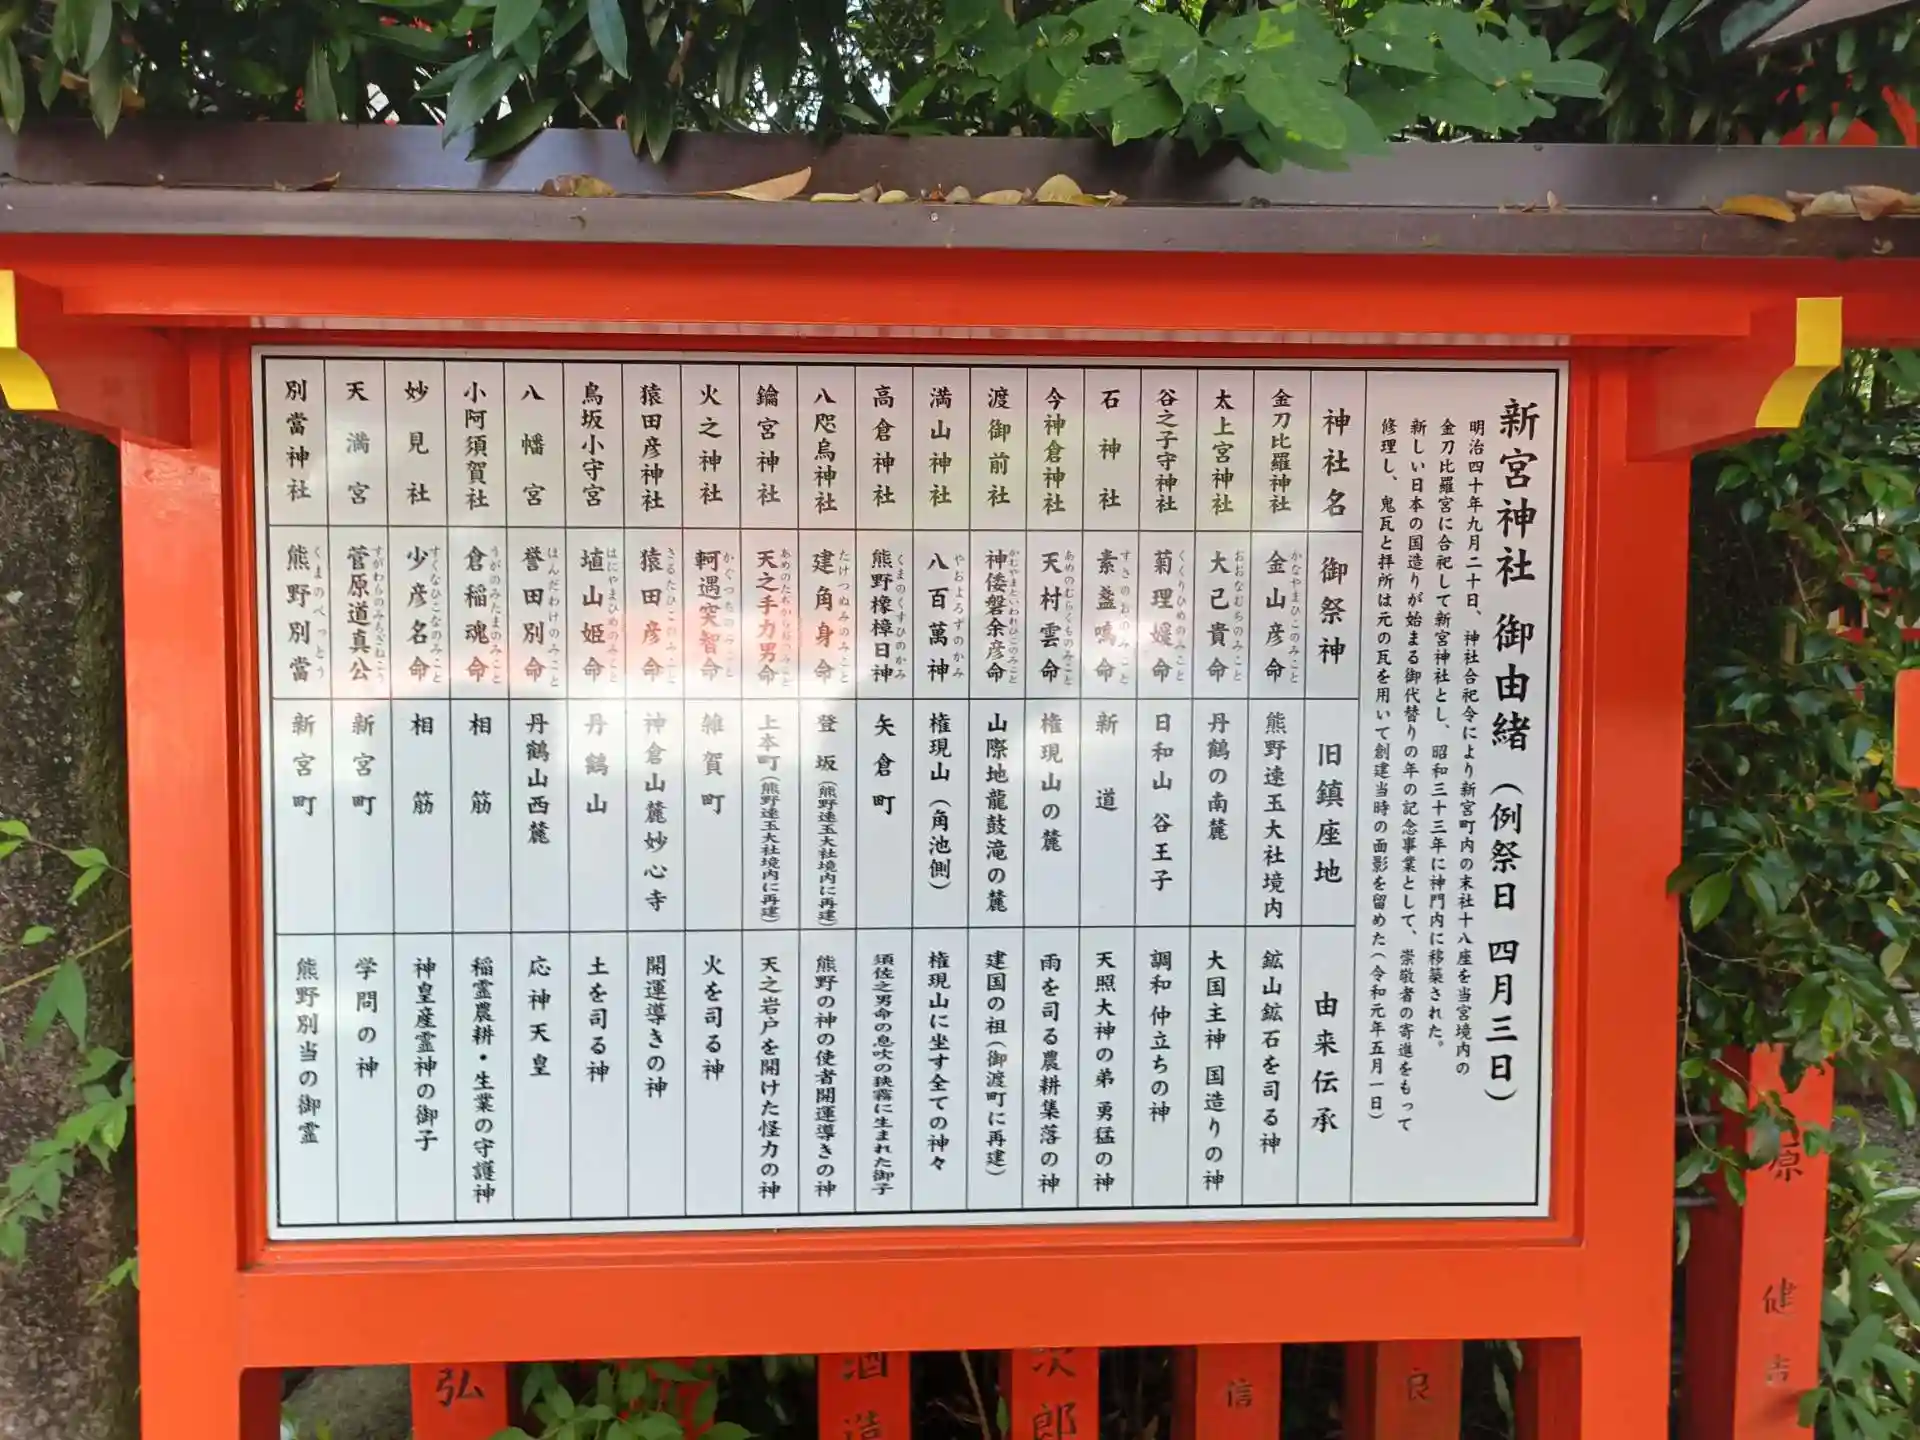 新宮神社 御由緒(例祭日 四月三日)
明治四十年九月二十日、神社合祀令により新宮町内の末社十八座を当宮境内の
金刀比羅宮に合祀して新宮神社とし、昭和三十三年に神門内に移築された。
新しい日本の国造りが始まる御代替りの年の記念事業として、崇敬者の寄進をもって
修理し、鬼瓦と拝所は元の瓦を用いて創建当時の面影を留めた(令和元年五月一日)
神社名 御祭神 旧鎮座地 由来伝承
金刀比羅神社 金山彦命 かなやまひこのみこと 熊野速玉大社境内 鉱山鉱石を司る神
太上宮神社 大己貴命 おおなむちのみこと 丹鶴の南麓 大国主神 国造りの神
谷之子守神社 菊理媛命 くくりひめのみこと 日和山 谷王子 調和 仲立ちの神
石神社 素盞鳴命 すさのおのみこと 新道 天照大神の弟 勇猛の神
今神倉神社 天村雲命 あめのむらくものみこと 権現山の麓 雨を司る農耕集落の神
渡御前社 神倭磐余彦命 かむやまといわれひこのみこと 山際地龍鼓滝の麓 建国の祖(御渡町に再建)
満山神社 八百萬神 やおよろずのかみ 権現山(角池側) 権現山に坐す全ての神々
高倉神社 熊野橡樟日神 くまのくすひのかみ 矢倉町 須佐之男命の息吹の狭霧に生まれた御子
八咫烏神社 建角身命 たけつぬみのみこと 登坂(熊野速玉大社境内に再建) 熊野の神の使者開運導きの神
鑰宮神社 天之手力男命 あめのたぢからおのみこと 上本町(熊野速玉大社境内に再建) 天之岩戸を開けた怪力の神
火之神社 軻遇突智命 かぐつちのみこと 雑賀町 火を司る神
猿田彦神社 猿田彦命 さるたひこのみこと 神倉山麓妙心寺 開運導きの神
鳥坂小守宮 埴山姫命 はにやまひめのみこと 丹鶴山 土を司る神
八幡宮 誉田別命 ほんだわけのみこと 丹鶴山西麓 応神天皇
小阿須賀社 倉稲魂命 うがのみたまのみこと 相筋 稲霊農耕・生業の守護神
妙見社 少彦名命 すくなひこなのみこと 相筋 神皇産霊神の御子
天満宮 菅原道真公 すがわらのみちざねこう 新宮町 学問の神
別當神社 熊野別當 くまのべっとう 新宮町 熊野別当の御霊
弘
酒造
次郎
信
良
原 健吉